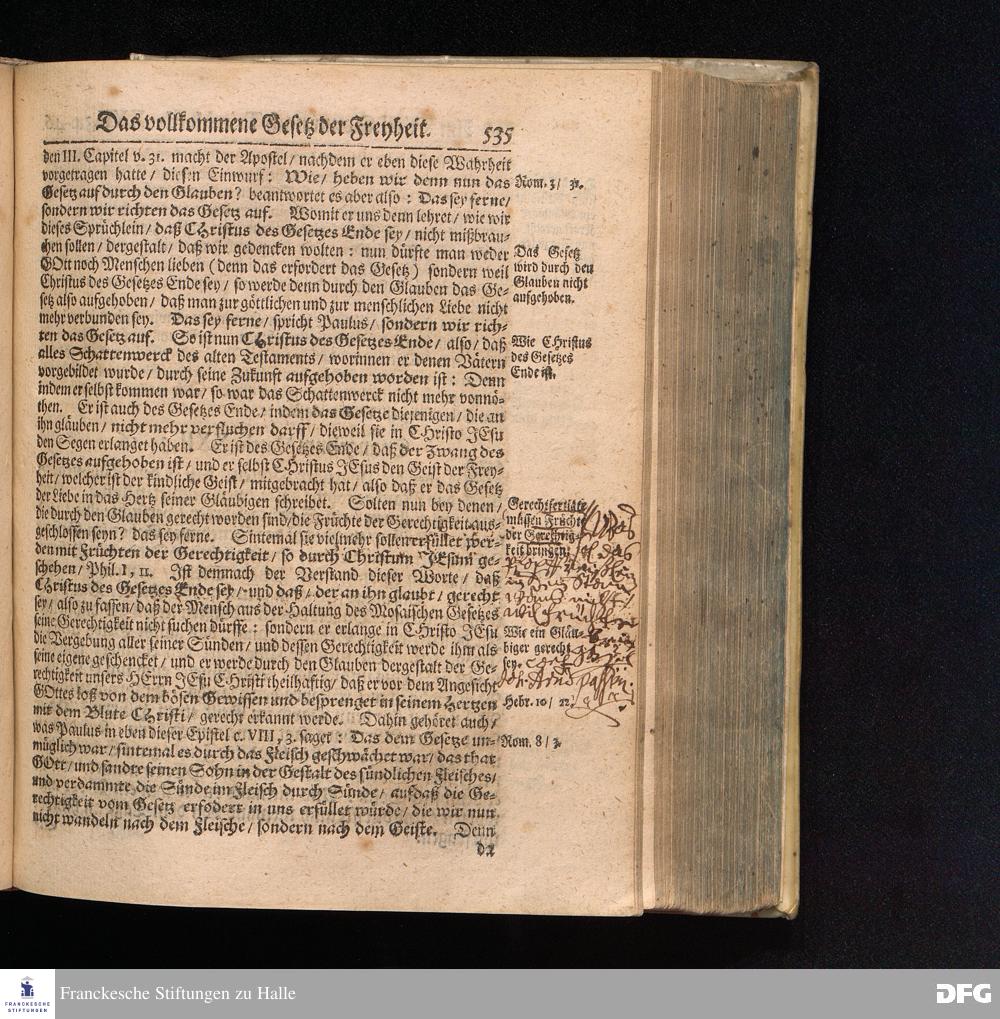 Das vollkommene Gesetz der Freyheit. 535
den III. Capitel v. 31. macht der Apostel / nachdem er eben diese Wahrheit
vorgetragen hatte / diesen Einwurf: Wie / heben wir denn nun das
Gesetz auf durch den Glauben? beantwortet es aber also: Das sey ferne /
sondern wir richten das Gesetz auf. Womit er uns denn lehret / wie wir
dieses Sprüchlein / daß Christus des Gesetzes Ende sey / nicht mißbrau-
chen sollen / dergestalt / daß wir gedencken wolten: nun dürfte man weder
GOtt noch Menschen lieben (denn das erfordert das Gesetz) sondern weil
Christus des Gesetzes Ende sey / so werde denn durch den Glauben das Ge-
setz also aufgehoben / daß man zur göttlichen und zur menschlichen Liebe nicht
mehr verbunden sey. Das sey ferne / spricht Paulus / sondern wir rich-
ten das Gesetz auf. So ist nun CHristus des Gesetzes Ende / also / daß
alles Schattenwerck des alten Testaments / worinnen er denen Vätern
vorgebildet wurde / durch seine Zukunft aufgehoben worden ist: Denn
indem er selbst kommen war / so war das Schattenwerck nicht mehr vonnö-
then. Er ist auch des Gesetzes Ende / indem das Gesetze diejenigen / die an
ihn gläuben / nicht mehr verfluchen darff / dieweil sie in CHristo JEsu
den Segen erlanget haben. Er ist des Gesetzes Ende / daß der Zwang des
Gesetzes aufgehoben ist / und er selbst CHristus JEsus den Geist der Frey-
heit / welcher ist der kindliche Geist / mitgebracht hat / also daß er das Gesetz
der Liebe in das Hertz seiner Gläubigen schreibet. Solten nun bey denen /
die durch den Glauben gerecht worden sind / die Früchte der Gerechtigkeit aus-
geschlossen seyn? das sey ferne. Sintemal sie vielmehr sollen erfüllet wer-
den mit Früchten der Gerechtigkeit / so durch Christum JEsum ge-
schehen / Phil. I, 11. Ist demnach der Verstand dieser Worte / daß
Christus des Gesetzes Ende sey / und daß / der an ihn glaubt / gerecht
sey / also zu fassen / daß der Mensch aus der Haltung des Mosaischen Gesetzes
seine Gerechtigkeit nicht suchen dürffe: sondern er erlange in CHristo JEsu
die Vergebung aller seiner Sünden / und dessen Gerechtigkeit werde ihm als
seine eigene geschencket / und er werde durch den Glauben dergestalt der Ge-
rechtigkeit unsers HErrn JEsu CHristi theilhaftig / daß er vor dem Angesicht
GOttes loß von dem bösen Gewissen und besprenget in seinem Hertzen
mit dem Blute CHristi / gerecht erkannt werde. Dahin gehöret auch /
was Paulus in eben dieser Epistel c. VIII, 3. saget: Das dem Gesetze un-
müglich war / sintemal es durch das Fleisch geschwächet war / das that
GOtt / und sandte seinen Sohn in der Gestalt des sündlichen Fleisches /
und verdammte die Sünde im Fleisch durch Sünde / auf daß die Ge-
rechtigkeit vom Gesetz erfodert in uns erfüllet würde / die wir nun
nicht wandeln nach dem Fleische / sondern nach dem Geiste. Denn
da
Rom. 3 / 31.
Das Gesetz
wird durch den
Glauben nicht
aufgehoben.
Wie CHristus
des Gesetzes
Ende ist.
Gerechtfertigte
müssen Früchte
der Gerechtig-
keit bringen.
Wie ein Gläu-
biger gerecht
sey.
Hebr. 10 / 22.
Rom. 8 / 3.
Franckesche Stiftungen zu Halle
FRANCKESCHE
STIFTUNGEN
DFG